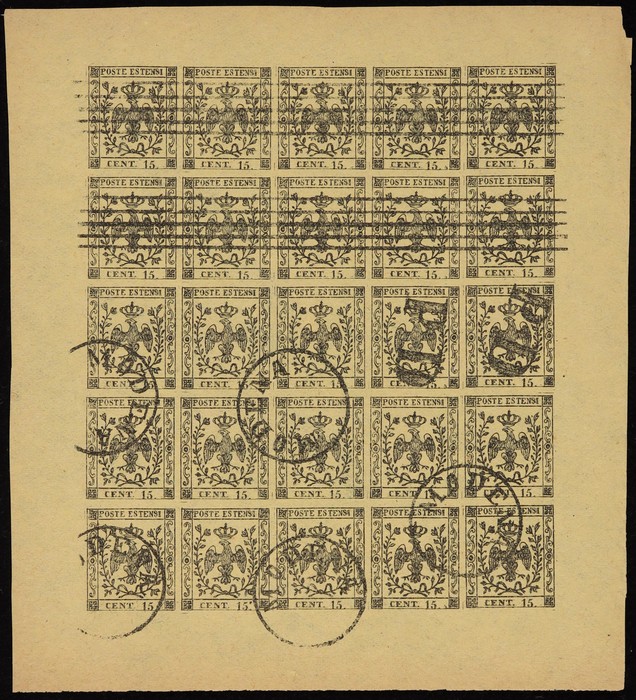 POSTE ESTENSI POSTE ESTENSI POSTE ESTENSI POSTE ESTENSI POSTE ESTENSI
CENT. 15. CENT. 15. CENT. 15. CENT. 15. CENT. 15.
POSTE ESTENSI POSTE ESTENSI POSTE ESTENSI POSTE ESTENSI POSTE ESTENSI
CENT. 15. CENT. 15. CENT. 15. CENT. 15. CENT. 15.
POSTE ESTENSI POSTE ESTENSI POSTE ESTENSI POSTE ESTENSI POSTE ESTENSI
MODENA
CENT. 15. CENT. 15. CENT. 15. CENT. 15.
POSTE ESTENSI POSTE ESTENSI POSTE ESTENSI POSTE ESTENSI POSTE ESTENSI
CENT. 15. CENT. 15. CENT. 15. CENT. 15.
MODEN
POSTE ESTENSI POSTE ESTENSI POSTE ESTENSI POSTE ESTENSI POSTE ESTENSI
DENA
CENT. 15. CENT. 15. CENT. 15. CENT. 15. CENT. 15.